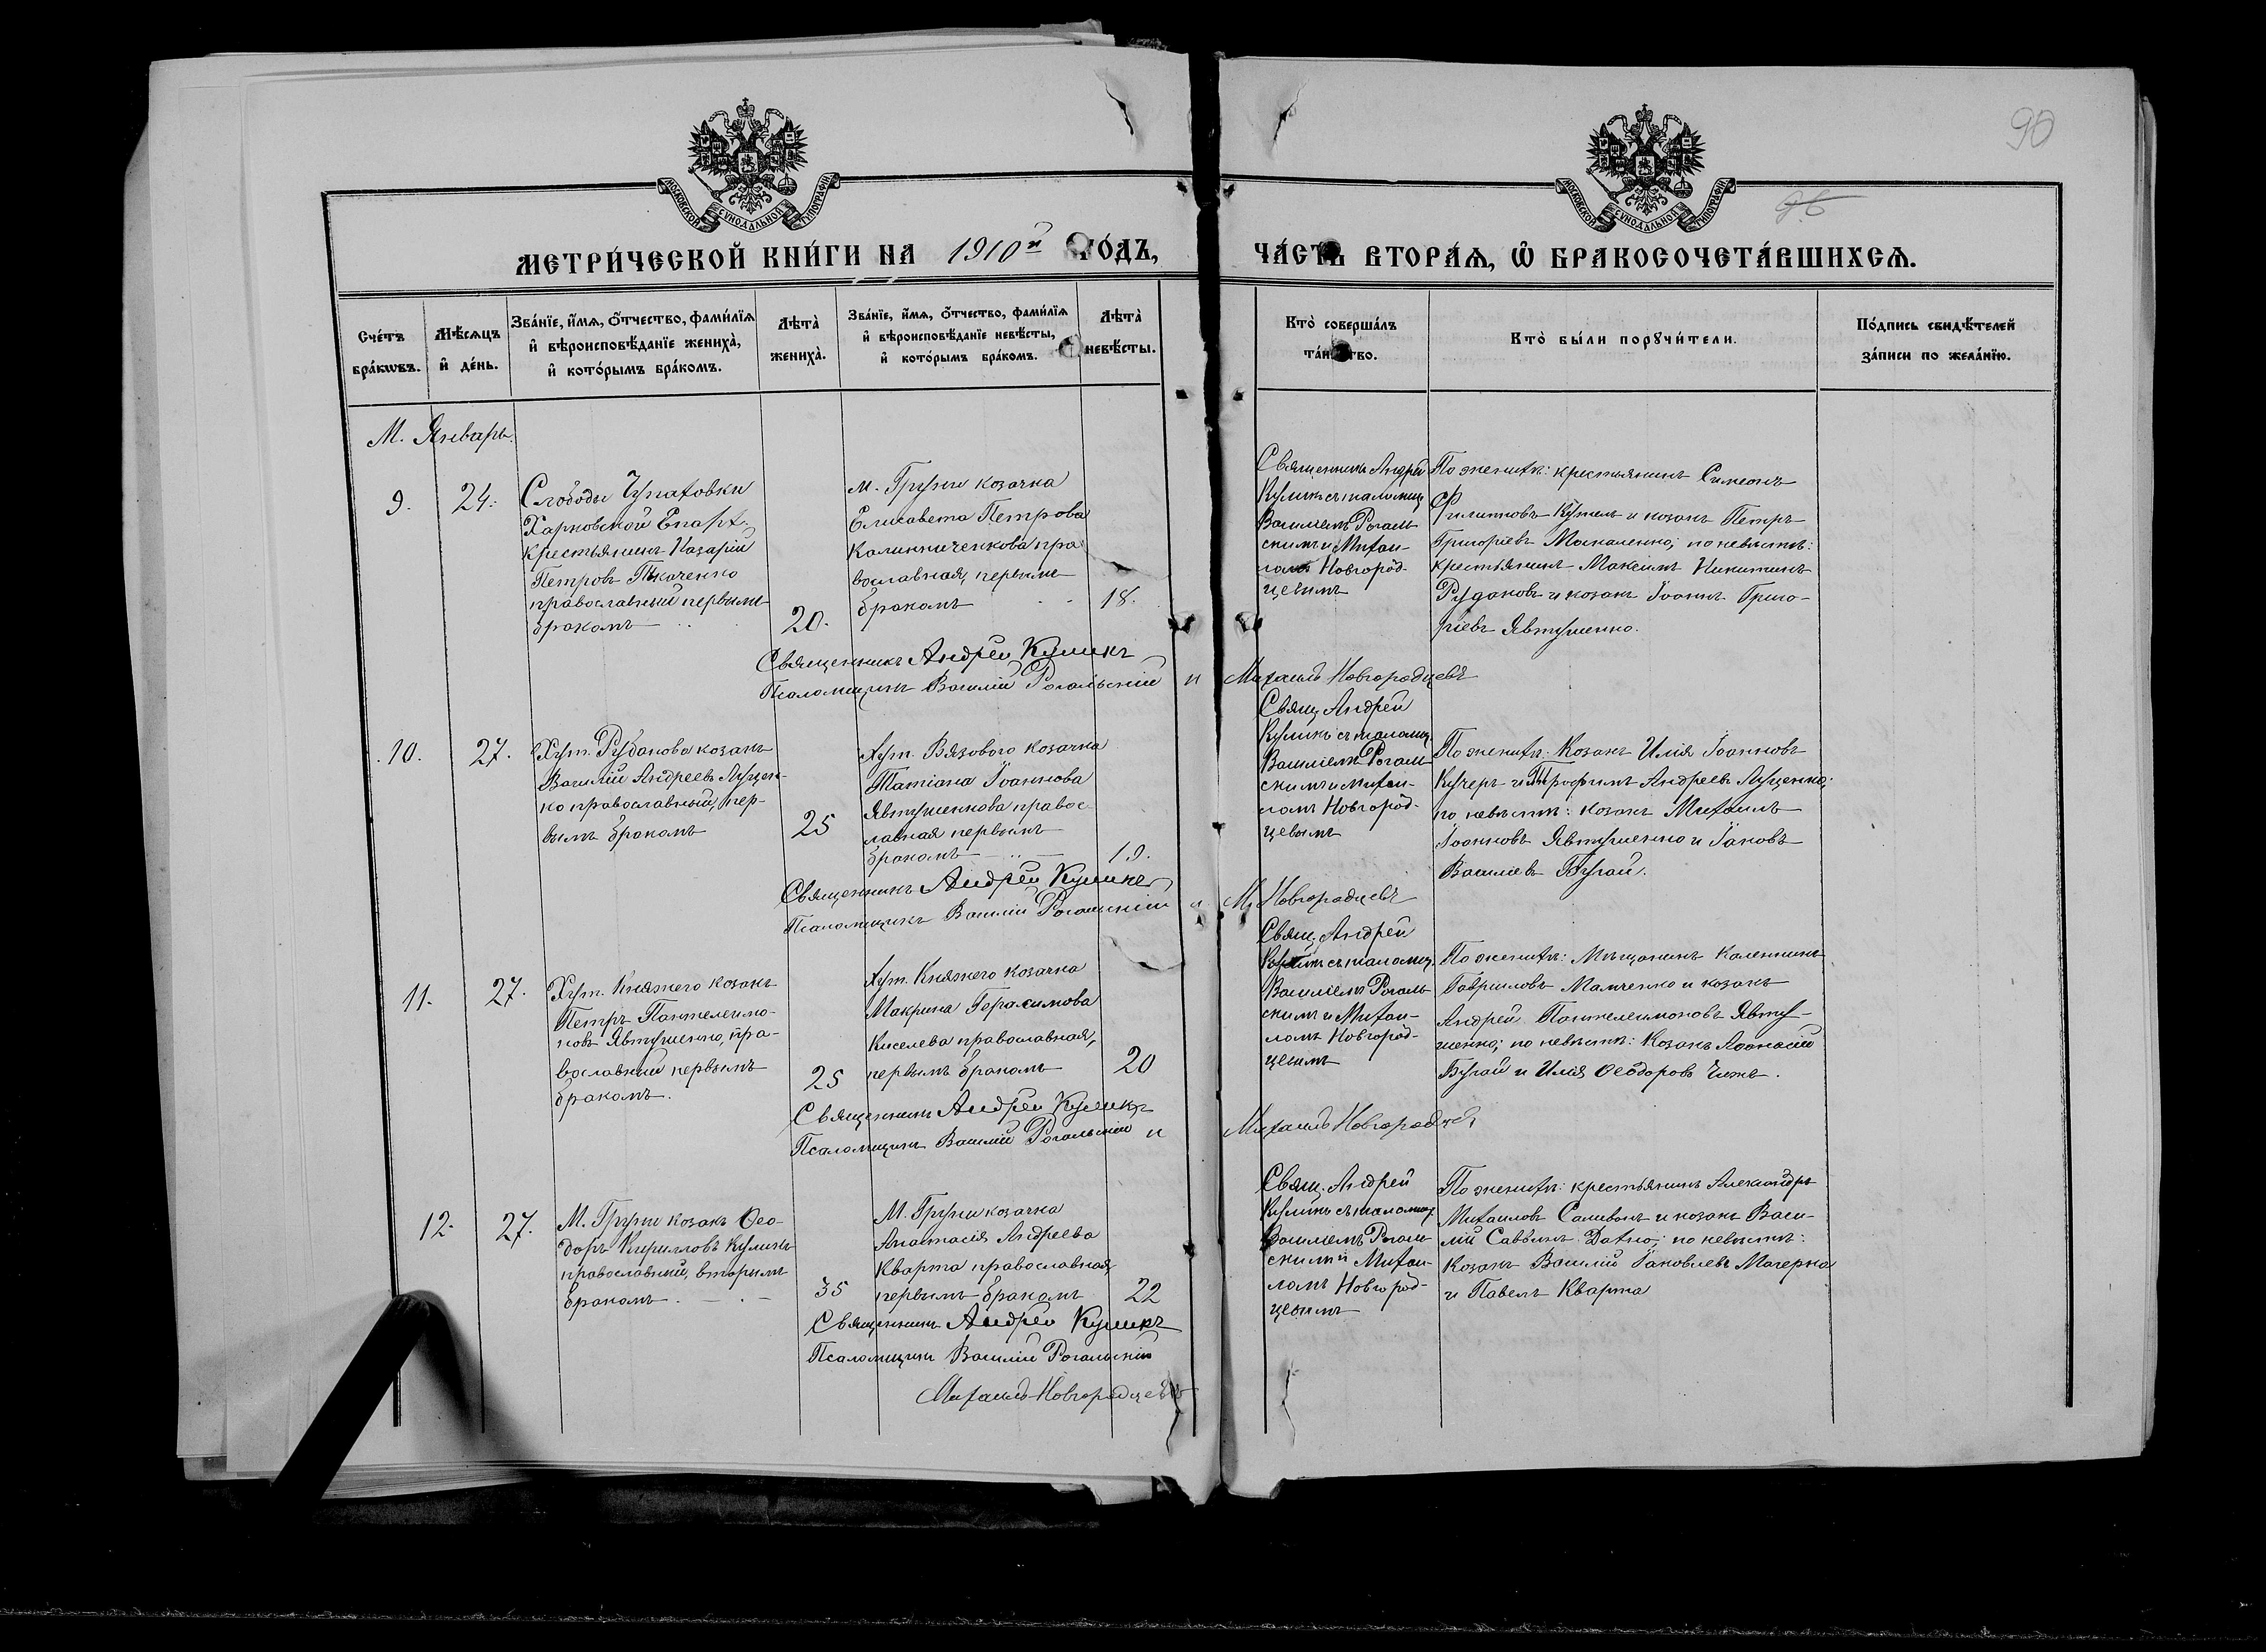 90
МОСКОВСКОЙ СУНОДАЛЬНОЙ ТИПОГРАФІИ
МОСКОВСКОЙ СУНОДАЛЬНОЙ ТИПОГРАФІИ
МЕТРИ́ЧЕСКОЙ КНИ́ГИ НА 1910й ГО́ДЪ,
ЧА́СТЬ ВТОРА́Ѧ, Ѽ БРАКОСОЧЕТА́ВШИХСѦ.
Сче́тъ бра́кѡвъ.
Мѣ́сѧцъ и҆ де́нь.
Зва́нїе, и҆́мѧ, ѻ҆́тчество, фами́лїѧ
и҆ вѣроисповѣ́данїе жениха̀,
и҆ кото́рымъ бра́комъ.
Лѣта̀ жениха̀.
Зва́нїе, и҆́мѧ, ѻ҆́тчество, фами́лїѧ
и҆ вѣроисповѣ́данїе невѣ́сты,
и҆ кото́рымъ бра́комъ.
Лѣта̀ невѣ́сты.
Кто̀ соверша́лъ
та́инство.
Кто̀ бы́ли порꙋчи́тели.
По́дпись свидѣ́телей
за́писи по жела́нїю.
М. Январь.
9.
24.
Слободы Чупаховки
Харьковской Епарх.
крестьянинъ Назарій
Петровъ Ткаченко
православный первымъ
бракомъ
20.
м. Груни козачка
Елисавета Петрова
Калиниченкова пра
вославная, первымъ
бракомъ
18.
Священникъ Андрей
Куликъ съ псаломщ.
Василіемъ Рогаль
скимъ и Михаи-
ломъ Новгород-
цевымъ
По женихѣ: крестьянинъ Симеонъ
Филипповъ и козакъ Петръ
Григоріевъ Москаленко; по невѣстѣ:
крестьянинъ Максимъ Никитинъ
Рудаковъ и козакъ Іоаннъ Григо-
ріевъ Явтушенко.
Священникъ Андрей Куликъ
Псаломщикъ Василій Рогальскій и Михаилъ Новгородцевъ
10.
27.
Хут. Рубанова козакъ
Василій Андреевъ Луцен-
ко православный, пер-
вымъ бракомъ
25
Хут. Вязового козачка
Татіана Іоаннова
Явтушенкова правос
лавная первымъ
бракомъ
19.
Свящ. Андрей
Куликъ съ псаломщ.
Василіемъ Рогаль
скимъ и Михаи-
ломъ Новгород-
цевымъ
По женихѣ: Козакъ Илія Іоанновъ
Кучеръ и Трофимъ Андреевъ Луценко;
по невѣстѣ: козакъ Михаилъ
Іоанновъ Явтушенко и Іаковъ
Василіевъ Бугай.
Священникъ Андрей Куликъ
Псаломщикъ Василій Рогальскій и М. Новгородцевъ
11.
27.
Хут. Княжего козакъ
Петръ Пантелеимо-
новъ Явтушенко, пра-
вославный первымъ
бракомъ.
25
Хут. Княжего козачка
Макрина Герасимова
Киселева православная,
первымъ бракомъ
20
Свящ. Андрей
Куликъ съ псаломщ.
Василіемъ Рогаль
скимъ и Михаи-
ломъ Новгород-
цевымъ
По женихѣ: Мѣщанинъ Калинникъ
Гавриловъ Мамченко и козакъ
Андрей Пантелеимоновъ Явту-
шенко; по невѣстѣ: Козакъ Аѳанасій
Бугай и Илія Ѳеодоровъ Чижъ.
Священникъ Андрей Куликъ
Псаломщикъ Василій Рогальскій и Михаилъ Новгородцевъ
12.
27.
М. Груни козакъ Ѳео-
доръ Кирилловъ Куликъ
православный, вторымъ
бракомъ
35
М. Груни козачка
Анастасія Андреева
Кварта православная,
первымъ бракомъ
22
Свящ. Андрей
Куликъ съ псаломщ.
Василіемъ Рогаль
скимъ и Михаи-
ломъ Новгород-
цевымъ
По женихѣ: крестьянинъ Александръ
Михаиловъ Саливонъ и козакъ Васи-
лій Саввинъ Дахно; по невѣстѣ:
Козакъ Василій Іаковлевъ Магерка
и Павелъ Кварта
Священникъ Андрей Куликъ
Псаломщики Василій Рогальскій
Михаилъ Новгородцевъ